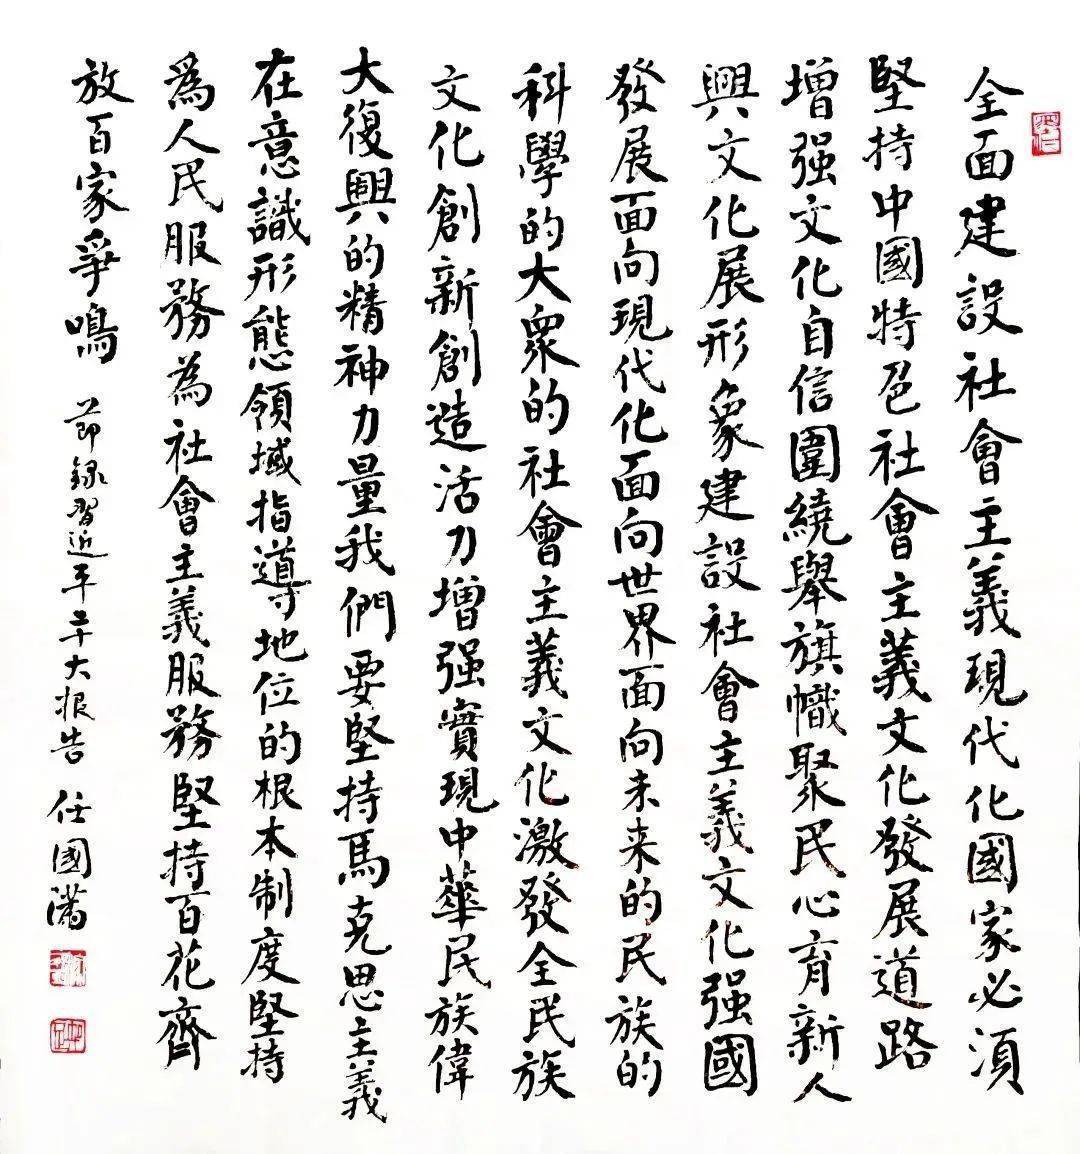 全面建設社會主義現代化國家必須
堅持中國特色社會主義文化發展道路
增强文化自信圍繞舉旗幟聚民心育新人
興文化展形象建設社會主義文化强國
發展面向現代化面向世界面向未来的民族的
科學的大衆的社會主義文化激發全民族
文化創新創造活力增强實現中華民族偉
大復興的精神力量我們要堅持馬克思主義
在意識形態領域指導地位的根本制度堅持
爲人民服務為社會主義服務堅持百花齊
放百家爭鳴 節録習近平二十大报告 任國滿